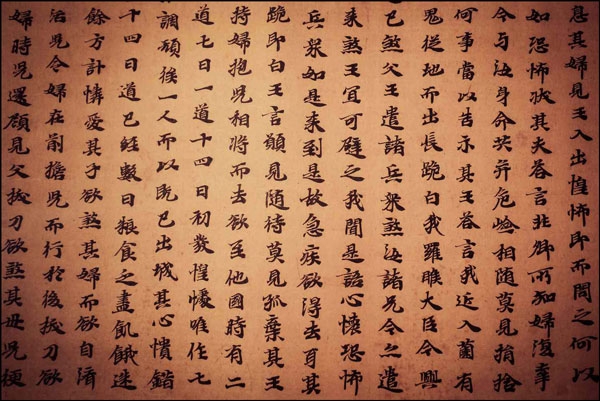 息其婦見王入出惶怖即而問之何以
如恐怖狀其夫荅言非卿所知婦復牽
今与汝身命共并危嶮相随莫見捐捨
何事當以告示其王荅言我近入薗有
鬼從地而出長跪白我羅睺大臣今興
已煞父王遣諸兵衆煞汝諸兄今亦遣
来煞王宜可避之我聞是語心懷恐怖
兵衆如是来到是故急疾欲得去耳其
跪即白王言願見随侍莫見孤棄其王
持婦抱兒相將而去欲至他國時有二
道七日一道十四日初發惶懅唯作七
調頓後一人而以既已出城其心憒錯
十四日道已經數日粮食之盡飢餓迷
餘方計憐愛其子欲煞其婦而欲自濟
活兒令婦在前擔兒而行於後拔刀欲
婦時兒還顧見父拔刀欲煞其母兒便